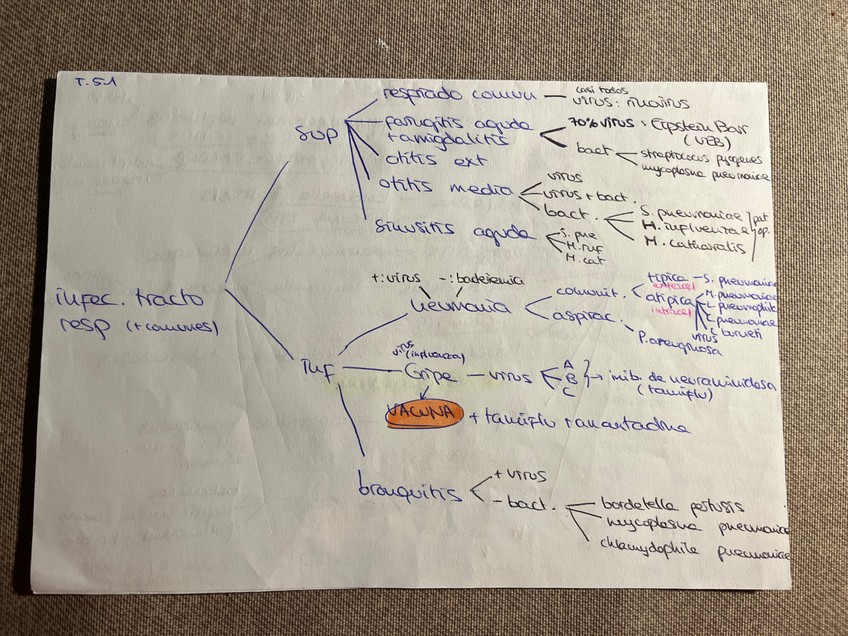 T. 5.1
sup
resfriado común — casi todos
virus: rinovirus
faringitis aguda
+ amigdalitis
70% virus: Epstein Barr
(VEB)
bact
streptococus pyogenes
mycoplasma pneumoniae
otitis ext
otitis media
virus
virus + bact.
bact.
S. pneumoniae
H. influenzae
M. catharalis
sinusitis aguda
S. pne
H. inf
M. cat
infec. tracto
resp (+ comunes)
inf
+: virus -: bacteriemia
neumonia
comunit.
típica - S. pneumoniae
extracel
atípica
intracel
M. pneumoniae
L. pneumophila
C. pneumoniae
C. burneti
virus
aspirac.
P. aeruginosa
virus (influenza)
Gripe — virus
A
B
C
→ inib. de neuraminidasa
(tamiflu)
VACUNA + tamiflu + amantadina
bronquitis
+ virus
- bact.
bordetella pertusis
mycoplasma pneumoniae
chlamydophila pneumoniae